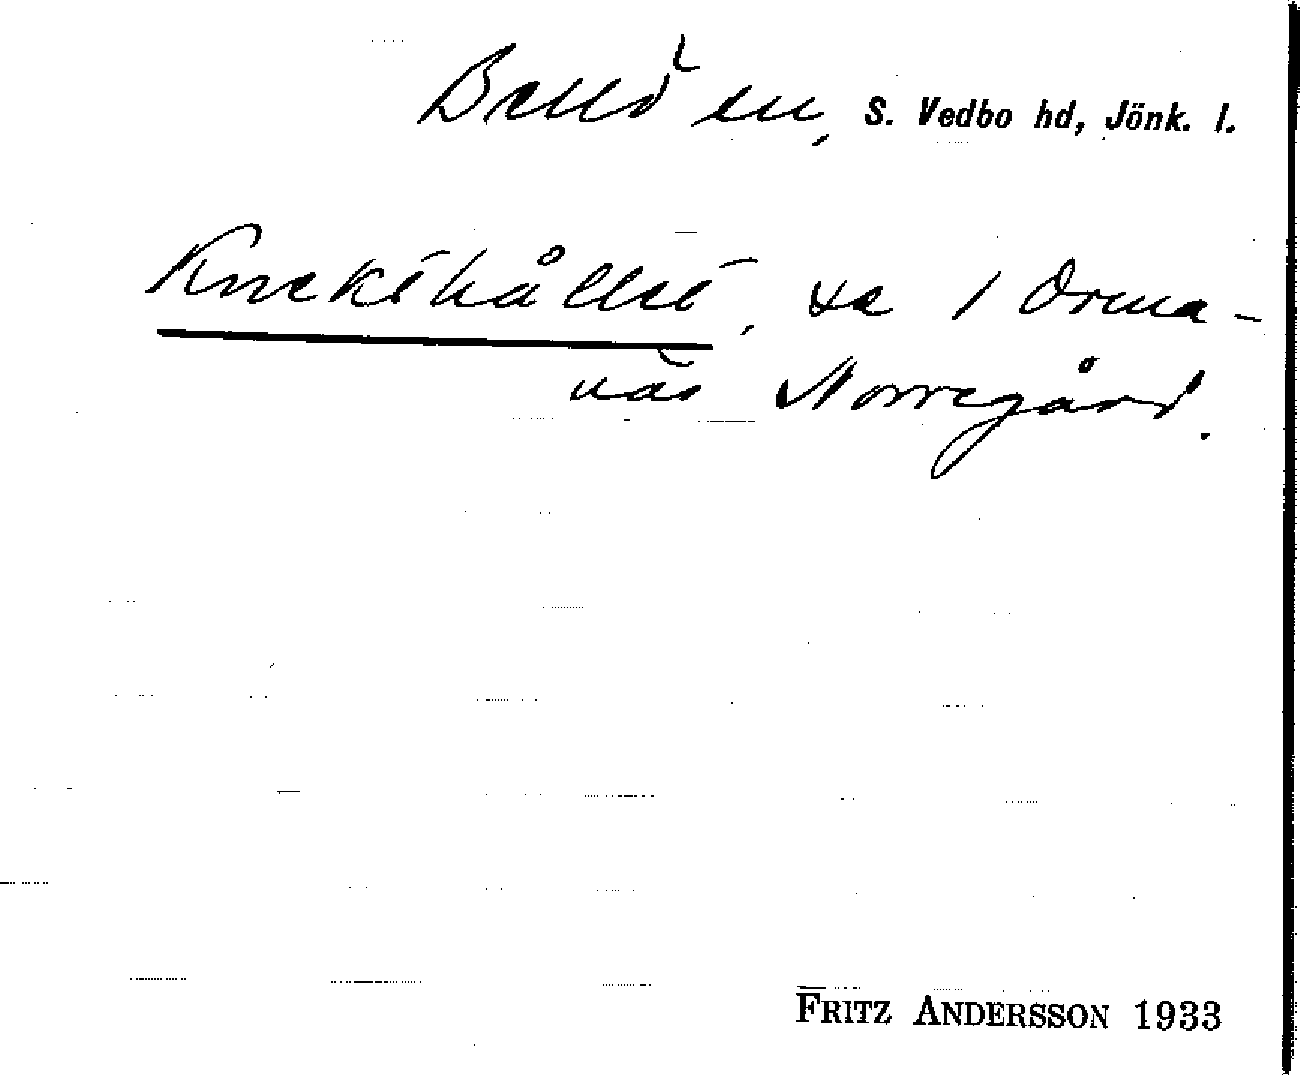 Bellö sn, S. Vedbo hd, Jönk. l.
Knektehållet, xx 1 Orma-
näs Norregård.
FRITZ ANDERSSON 1933